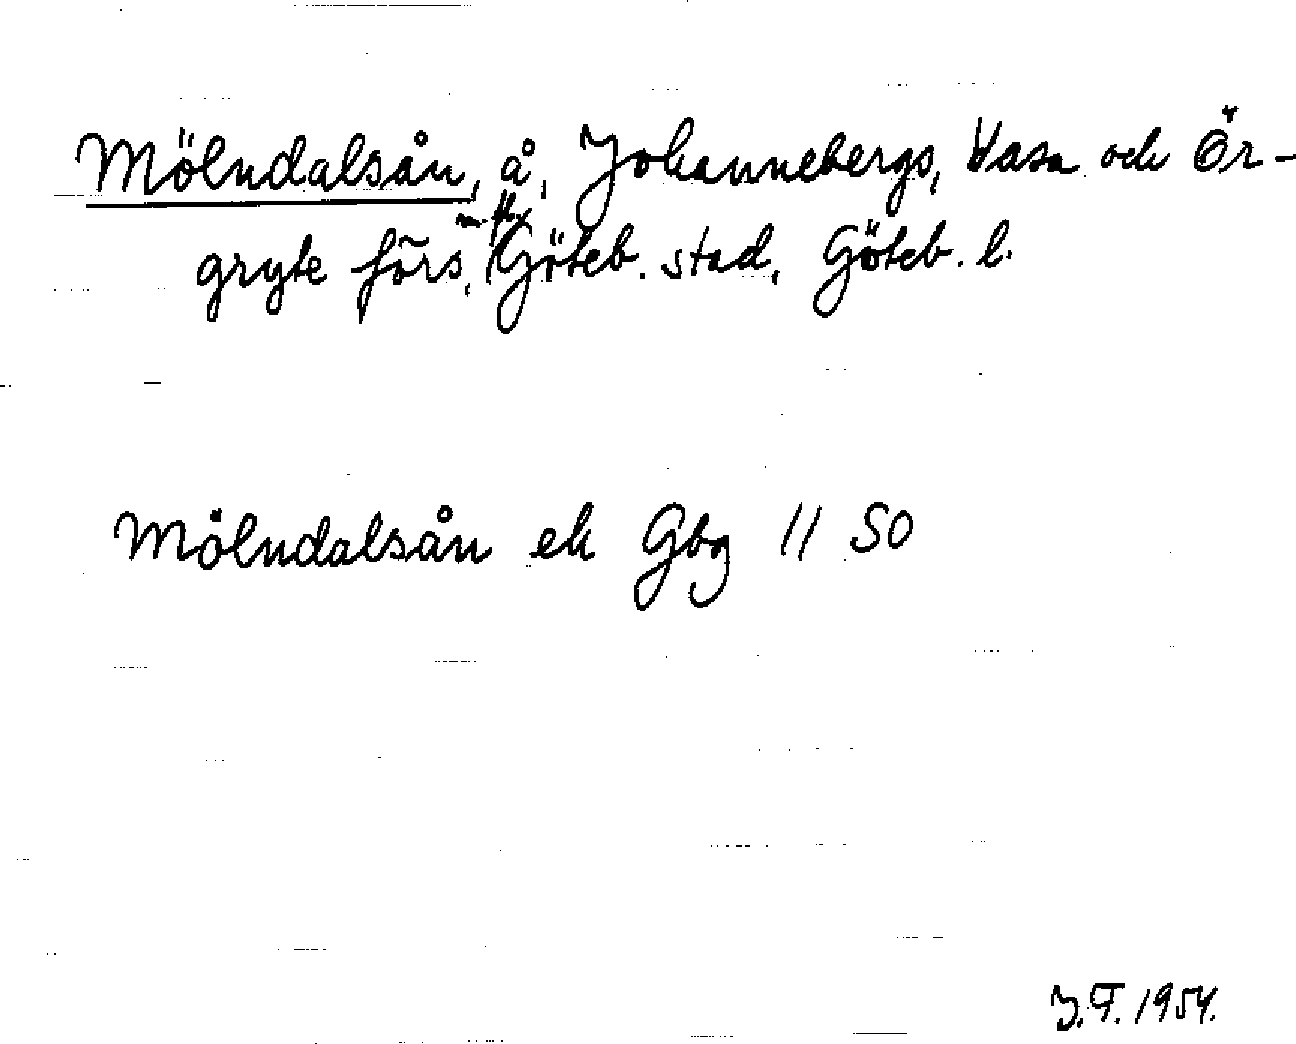 Mölndalsån, å, Johannebergs, Vasa och Ör-
gryte förs. m. fl., Göteb. stad, Göteb. l.
Mölndalsån ek Gbg 11 SO
J.F. 1954.